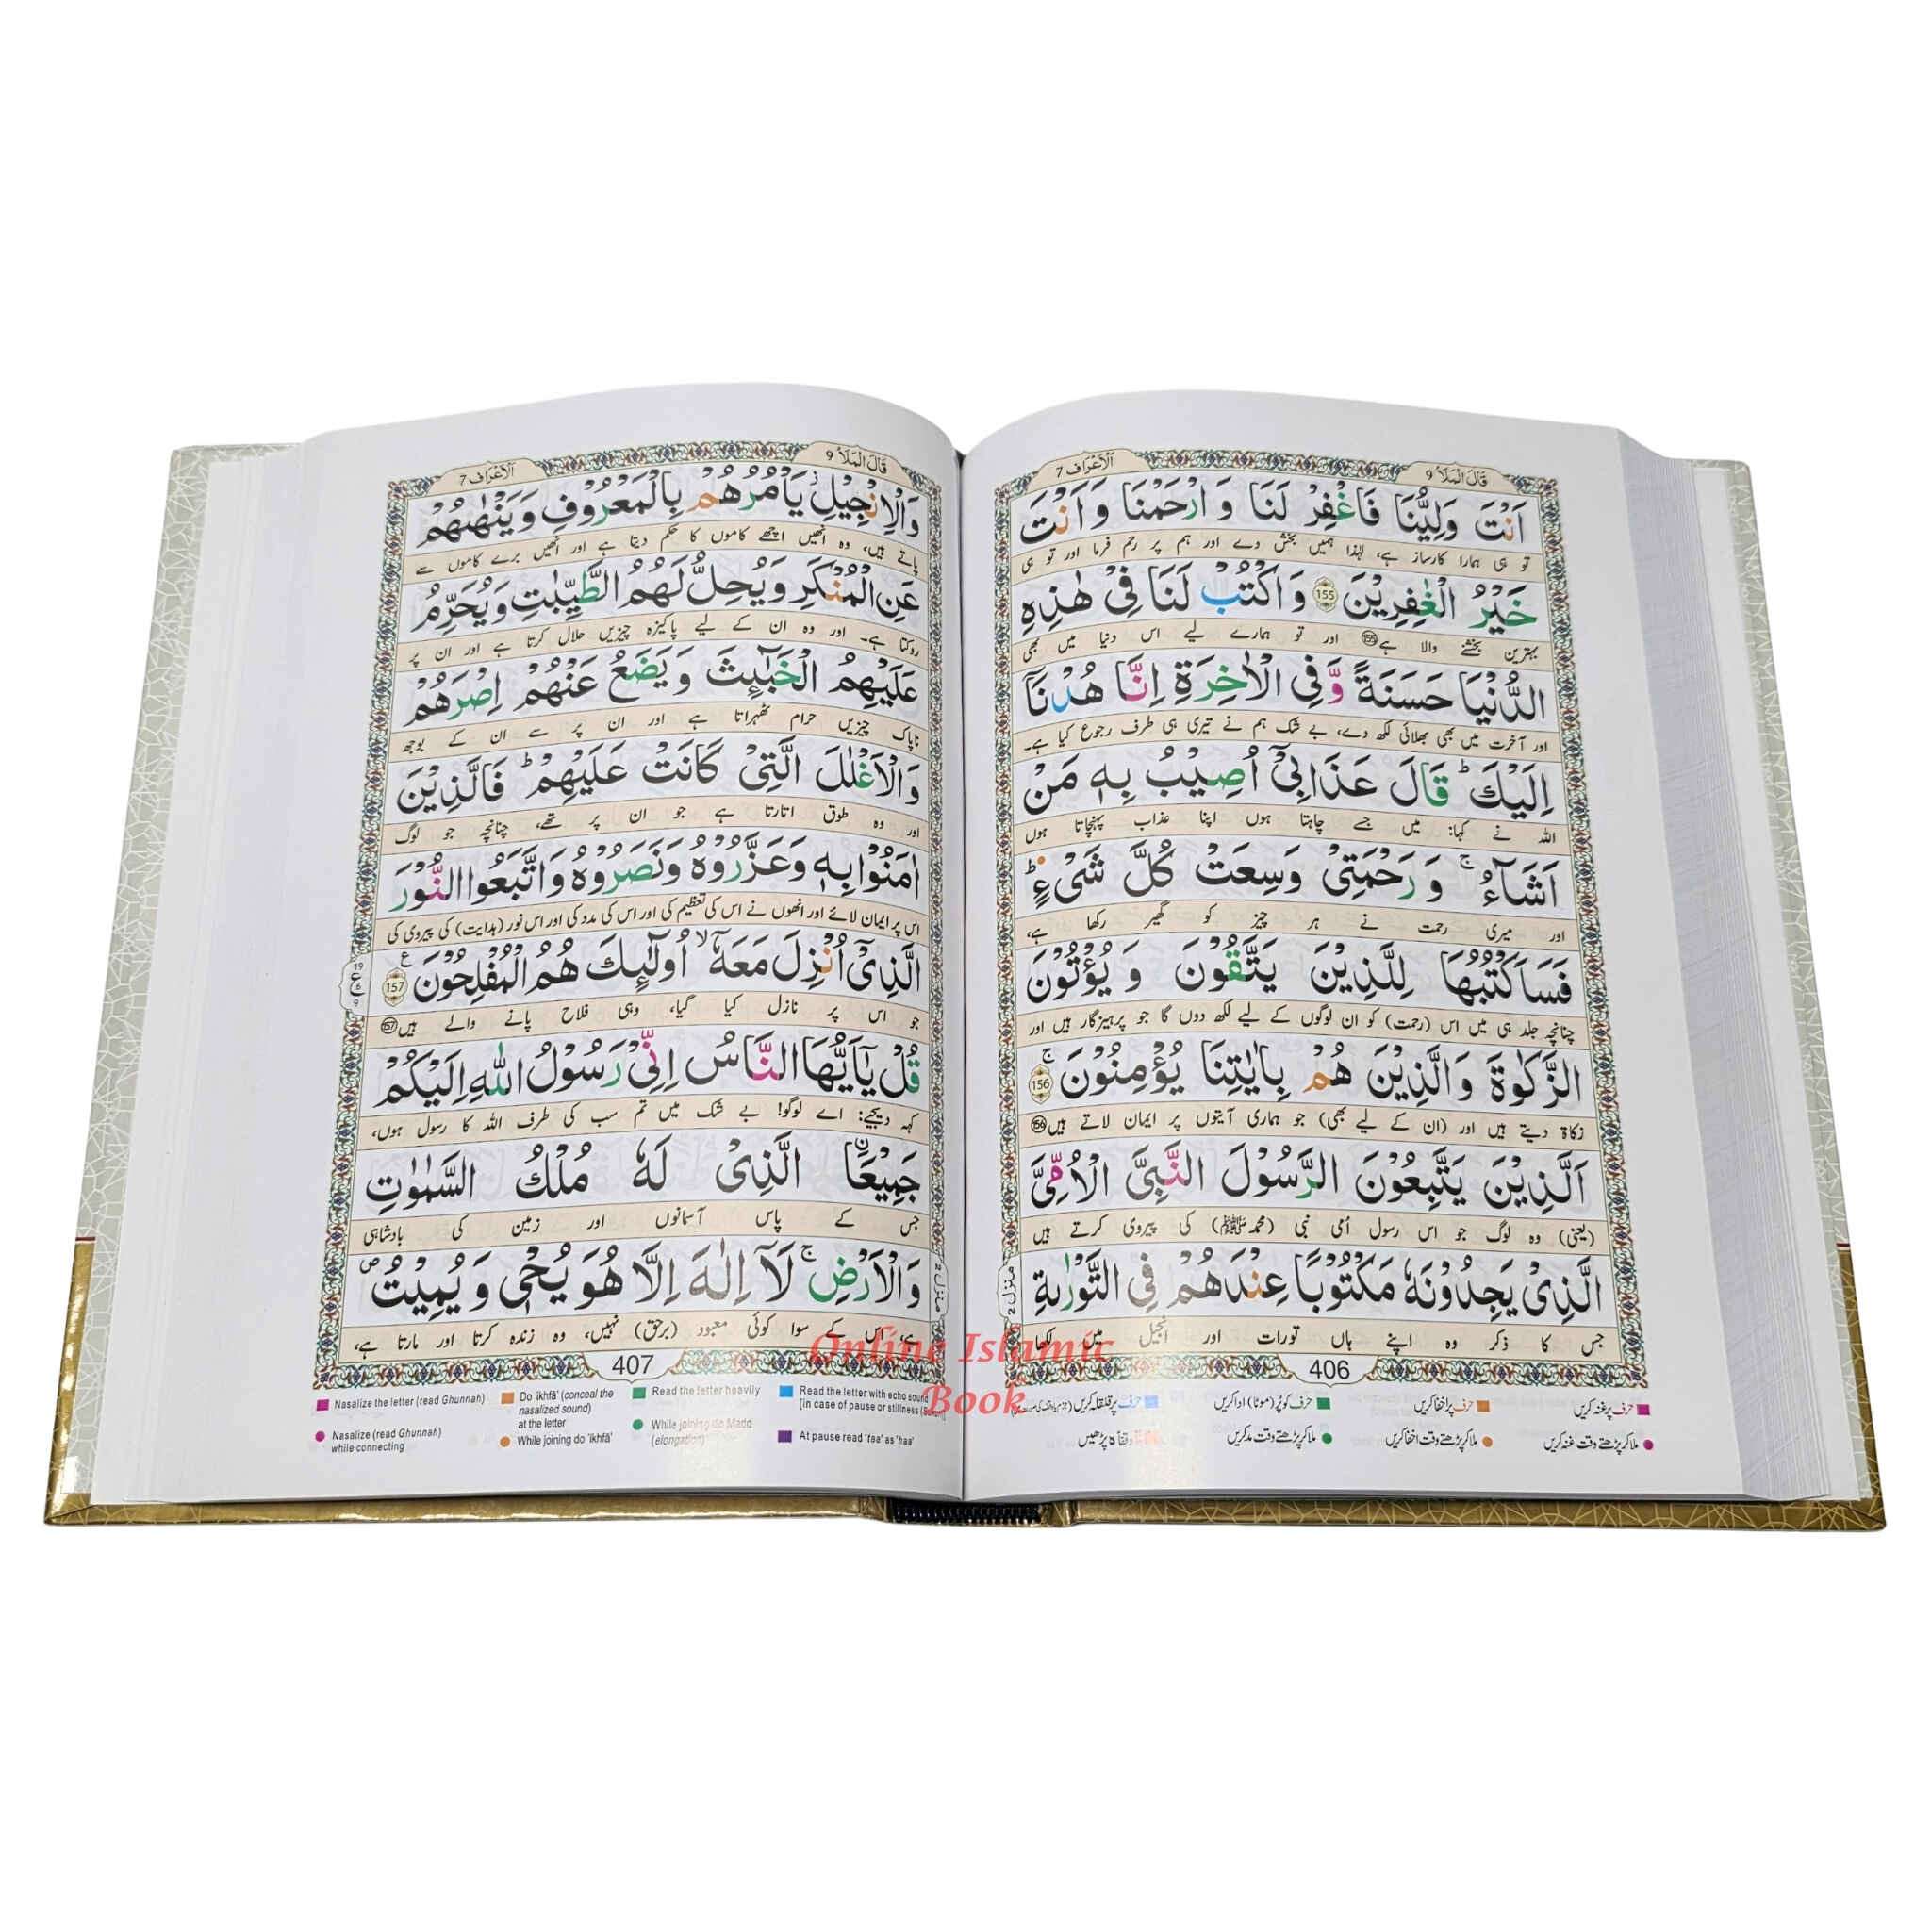 قَالَ الْمَلَاُ 9
اَلْاَعْرَاف 7
اَنْتَ وَلِيُّنَا فَاغْفِرْ لَنَا وَ ارْحَمْنَا وَ اَنْتَ
تو ہی ہمارا کارساز ہے، لہٰذا ہمیں بخش دے اور ہم پر رحم فرما اور تو ہی
خَيْرُ الْغٰفِرِيْنَ 155 وَ اكْتُبْ لَنَا فِيْ هٰذِهِ
بہترین بخشنے والا ہے 155 اور تو ہمارے لیے اس دنیا میں بھی
الدُّنْيَا حَسَنَةً وَّ فِي الْاٰخِرَةِ اِنَّا هُدْنَاۤ
اور آخرت میں بھی بھلائی لکھ دے، بے شک ہم نے تیری ہی طرف رجوع کیا ہے۔
اِلَيْكَ ؕ قَالَ عَذَابِيْۤ اُصِيْبُ بِهٖ مَنْ
اللہ نے کہا: میں جسے چاہتا ہوں اپنا عذاب پہنچاتا ہوں
اَشَآءُ ۚ وَ رَحْمَتِيْ وَسِعَتْ كُلَّ شَيْءٍ ؕ
اور میری رحمت نے ہر چیز کو گھیر رکھا ہے،
فَسَاَكْتُبُهَا لِلَّذِيْنَ يَتَّقُوْنَ وَ يُؤْتُوْنَ
چنانچہ جلد ہی میں اس (رحمت) کو ان لوگوں کے لیے لکھ دوں گا جو پرہیزگار ہیں اور
الزَّكٰوةَ وَالَّذِيْنَ هُمْ بِاٰيٰتِنَا يُؤْمِنُوْنَ ۚ 156
زکاۃ دیتے ہیں اور (ان کے لیے بھی) جو ہماری آیتوں پر ایمان لاتے ہیں 156
اَلَّذِيْنَ يَتَّبِعُوْنَ الرَّسُوْلَ النَّبِيَّ الْاُمِّيَّ
(یعنی) وہ لوگ جو اس رسول اُمی نبی (محمد ﷺ) کی پیروی کرتے ہیں
الَّذِيْ يَجِدُوْنَهٗ مَكْتُوْبًا عِنْدَهُمْ فِي التَّوْرٰىةِ
جس کا ذکر وہ اپنے ہاں تورات اور انجیل میں لکھا
منزل 2
406
حرف پر غنہ کریں
حرف پر اخفا کریں
حرف کو پُر (موٹا) ادا کریں
حرف پر قلقلہ کریں
ملا کر پڑھتے وقت غنہ کریں
ملا کر پڑھتے وقت اخفا کریں
ملا کر پڑھتے وقت مد کریں
قَالَ الْمَلَاُ 9
اَلْاَعْرَاف 7
وَالْاِنْجِيْلِ ؗ يَاْمُرُهُمْ بِالْمَعْرُوْفِ وَ يَنْهٰىهُمْ
پاتے ہیں، وہ انھیں اچھے کاموں کا حکم دیتا ہے اور انھیں برے کاموں سے
عَنِ الْمُنْكَرِ وَ يُحِلُّ لَهُمُ الطَّيِّبٰتِ وَ يُحَرِّمُ
روکتا ہے۔ اور وہ ان کے لیے پاکیزہ چیزیں حلال کرتا ہے اور ان پر
عَلَيْهِمُ الْخَبٰٓئِثَ وَ يَضَعُ عَنْهُمْ اِصْرَهُمْ
ناپاک چیزیں حرام ٹھہراتا ہے اور ان پر سے ان کے بوجھ
وَالْاَغْلٰلَ الَّتِيْ كَانَتْ عَلَيْهِمْ ؕ فَالَّذِيْنَ
اور وہ طوق اتارتا ہے جو ان پر تھے، چنانچہ جو لوگ
اٰمَنُوْا بِهٖ وَ عَزَّرُوْهُ وَ نَصَرُوْهُ وَاتَّبَعُوا النُّوْرَ
اس پر ایمان لائے اور انھوں نے اس کی تعظیم کی اور اس کی مدد کی اور اس نور (ہدایت) کی پیروی کی
الَّذِيْۤ اُنْزِلَ مَعَهٗۤ ۙ اُولٰٓئِكَ هُمُ الْمُفْلِحُوْنَ 157
19 ع 6 9
جو اس پر نازل کیا گیا، وہی فلاح پانے والے ہیں 157
قُلْ يٰۤاَيُّهَا النَّاسُ اِنِّيْ رَسُوْلُ اللّٰهِ اِلَيْكُمْ
کہہ دیجیے: اے لوگو! بے شک میں تم سب کی طرف اللہ کا رسول ہوں،
جَمِيْعَا الَّذِيْ لَهٗ مُلْكُ السَّمٰوٰتِ
جس کے پاس آسمانوں اور زمین کی بادشاہی
وَالْاَرْضِ ۚ لَاۤ اِلٰهَ اِلَّا هُوَ يُحْيٖ وَ يُمِيْتُ ۪
ہے، اس کے سوا کوئی معبود (برحق) نہیں، وہ زندہ کرتا اور مارتا ہے،
منزل 2
407
Nasalize the letter (read Ghunnah)
Do 'ikhfā' (conceal the nasalized sound) at the letter
Read the letter heavily
Read the letter with echo sound [in case of pause or stillness
Nasalize (read Ghunnah) while connecting
While joining do 'ikhfā'
While joining do Madd (elongation)
At pause read 'taa' as 'haa'
Online Islamic
Book